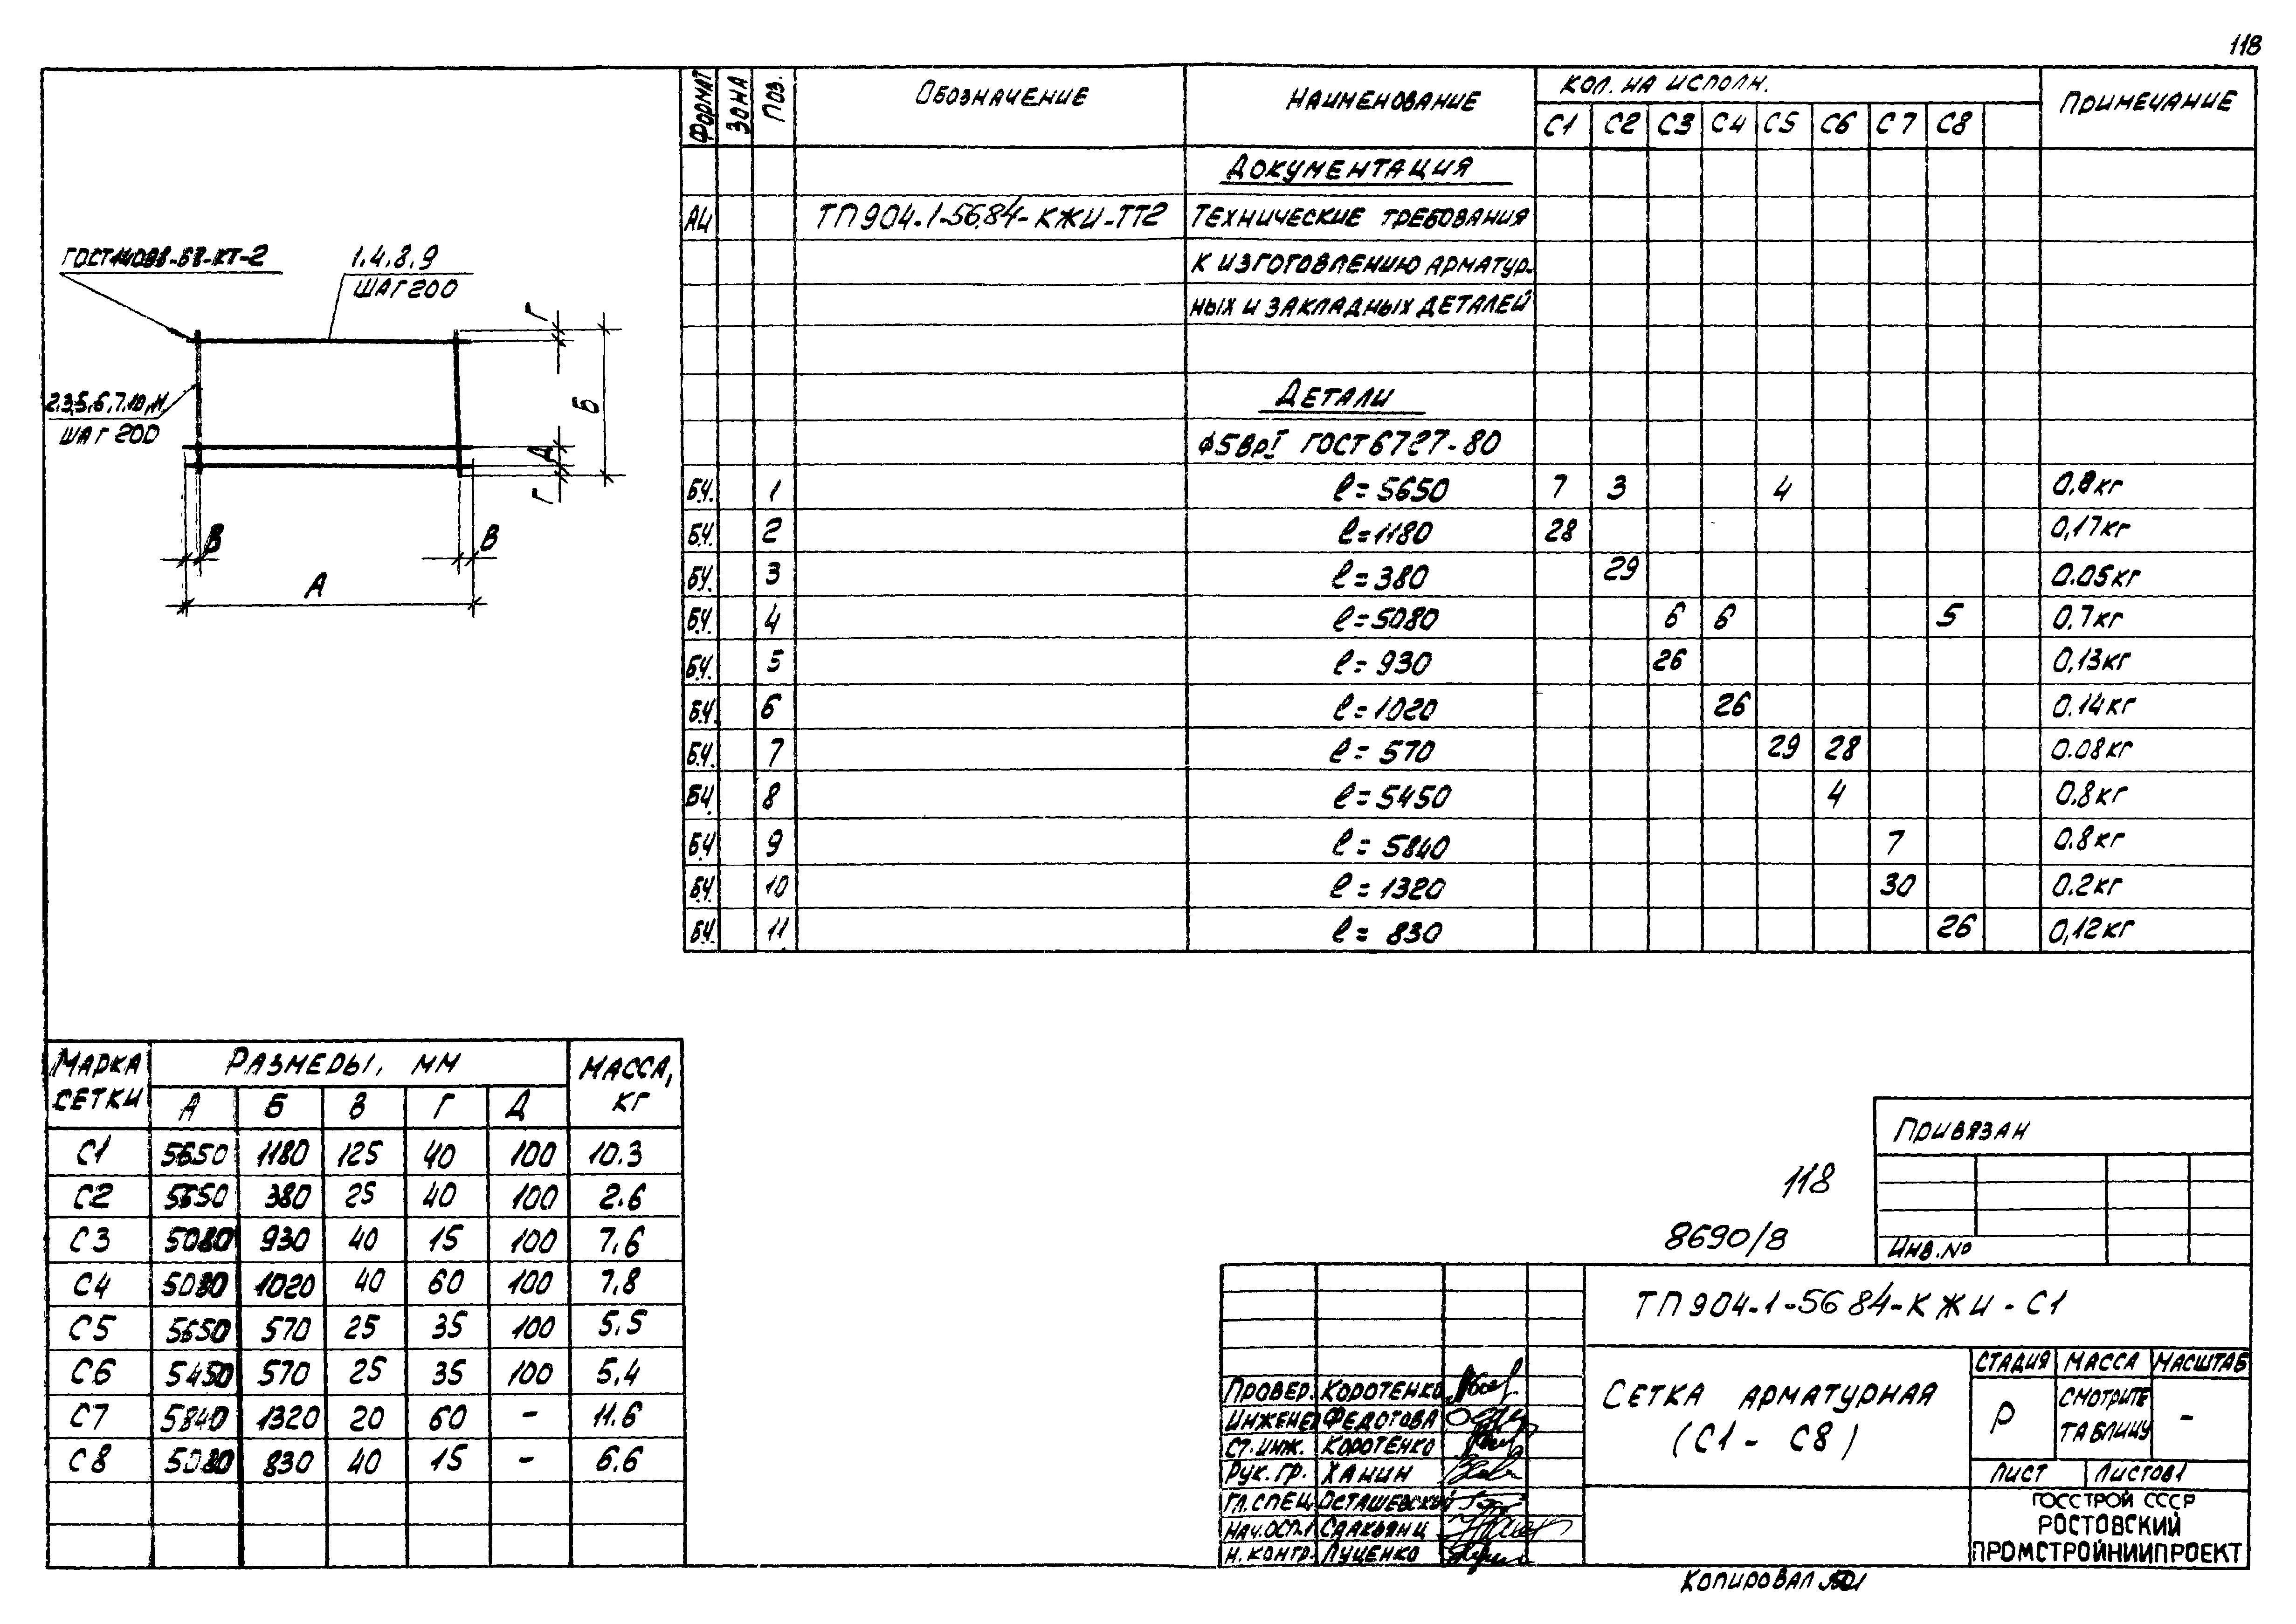 118
ФОРМАТ ЗОНА ПОЗ. ОБОЗНАЧЕНИЕ НАИМЕНОВАНИЕ КОЛ. НА ИСПОЛН. ПРИМЕЧАНИЕ
С1 С2 С3 С4 С5 С6 С7 С8
ДОКУМЕНТАЦИЯ
А4 ТП904-1-56.84-КЖИ-ТТ2 ТЕХНИЧЕСКИЕ ТРЕБОВАНИЯ
К ИЗГОТОВЛЕНИЮ АРМАТУР-
НЫХ И ЗАКЛАДНЫХ ДЕТАЛЕЙ
ДЕТАЛИ
Ф5ВрI ГОСТ6727-80
Б.Ч. 1 ℓ=5650 7 3 4 0,8кг
Б.Ч. 2 ℓ=1180 28 0,17кг
Б.Ч. 3 ℓ=380 29 0.05кг
Б.Ч. 4 ℓ=5080 6 6 5 0.7кг
Б.Ч. 5 ℓ=930 26 0,13кг
Б.Ч. 6 ℓ=1020 26 0.14кг
Б.Ч. 7 ℓ=570 29 28 0.08кг
Б.Ч. 8 ℓ=5450 4 0.8кг
Б.Ч. 9 ℓ=5840 7 0.8кг
Б.Ч. 10 ℓ=1320 30 0.2кг
Б.Ч. 11 ℓ=830 26 0,12кг
ГОСТ14098-68-КТ-2
1.4.8.9
ШАГ200
2.3.5.6.7.10.11.
ШАГ 200
Г
Б
Д
Г
В
В
А
МАРКА СЕТКИ РАЗМЕРЫ, ММ МАССА, КГ
А Б В Г Д
С1 5650 1180 125 40 100 10.3
С2 5650 380 25 40 100 2.6
С3 5080 930 40 15 100 7.6
С4 5080 1020 40 60 100 7.8
С5 5650 570 25 35 100 5.5
С6 5450 570 25 35 100 5.4
С7 5840 1320 20 60 - 11.6
С8 5080 830 40 15 - 6.6
ПРИВЯЗАН
ИНВ.№
118
8690/8
ТП904-1-56 84-КЖИ-С1
СЕТКА АРМАТУРНАЯ
(С1 - С8)
СТАДИЯ МАССА МАСШТАБ
Р СМОТРИТЕ ТАБЛИЦУ -
ЛИСТ ЛИСТОВ1
ГОССТРОЙ СССР
РОСТОВСКИЙ
ПРОМСТРОЙНИИПРОЕКТ
ПРОВЕР. КОРОТЕНКО
ИНЖЕНЕР ФЕДОТОВА
СТ.ИНЖ. КОРОТЕНКО
РУК.ГР. ХАНИН
ГЛ.СПЕЦ. ОСТАШЕВСКИЙ
НАЧ.ОСП-1 СААКЬЯНЦ
Н.КОНТР. ЛУЦЕНКО
КОПИРОВАЛ